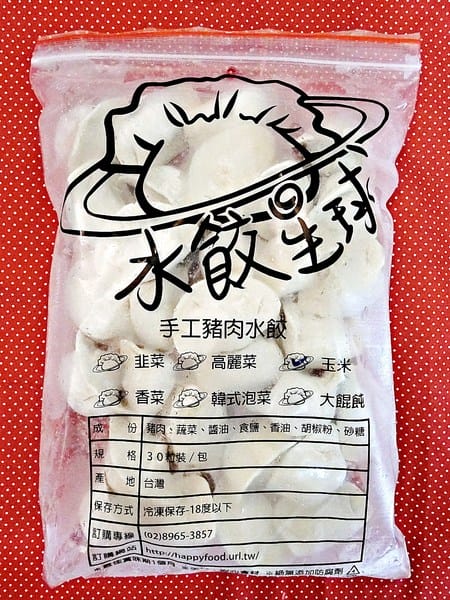 水餃星球
手工豬肉水餃
韭菜 高麗菜 玉米
香菜 韓式泡菜 大餛飩
成份 豬肉、蔬菜、醬油、食鹽、香油、胡椒粉、砂糖
規格 30粒裝/包
產地 台灣
保存方式 冷凍保存-18度以下
訂購專線 (02)8965-3857
訂購網站 http://happyfood.url.tw/